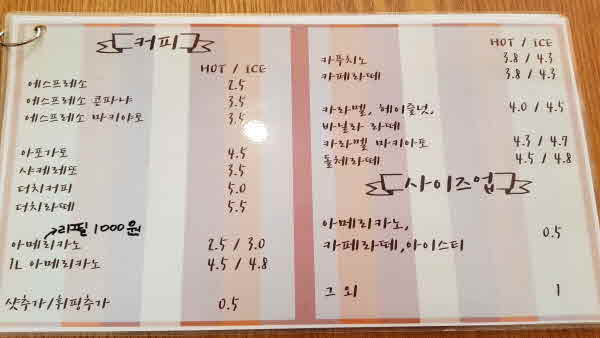 커피
HOT / ICE
에스프레소 2.5
에스프레소 콘파냐 3.5
에스프레소 마키아토 3.5
아포가토 4.5
샤케레또 3.5
더치커피 5.0
더치라떼 5.5
→리필 1000원
아메리카노 2.5 / 3.0
1L 아메리카노 4.5 / 4.8
샷추가/휘핑추가 0.5
HOT / ICE
카푸치노 3.8 / 4.3
카페라떼 3.8 / 4.3
카라멜, 헤이즐넛, 4.0 / 4.5
바닐라 라떼
카라멜 마키아토 4.3 / 4.7
돌체라떼 4.5 / 4.8
사이즈업
아메리카노,
카페라떼, 아이스티 0.5
그 외 1